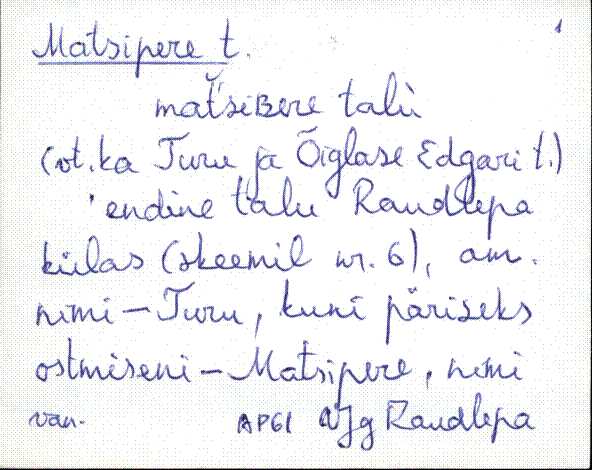 Matsipere t. 1
mat́siʙere talù
(vt. ka Turu ja Õiglase Edgari t.)
'endine talu Raudlepa
külas (skeemil nr. 6), am.
nimi – Turu, kuni päriseks
ostmiseni – Matsipere, nimi
van. AP61 VJg Raudlepa